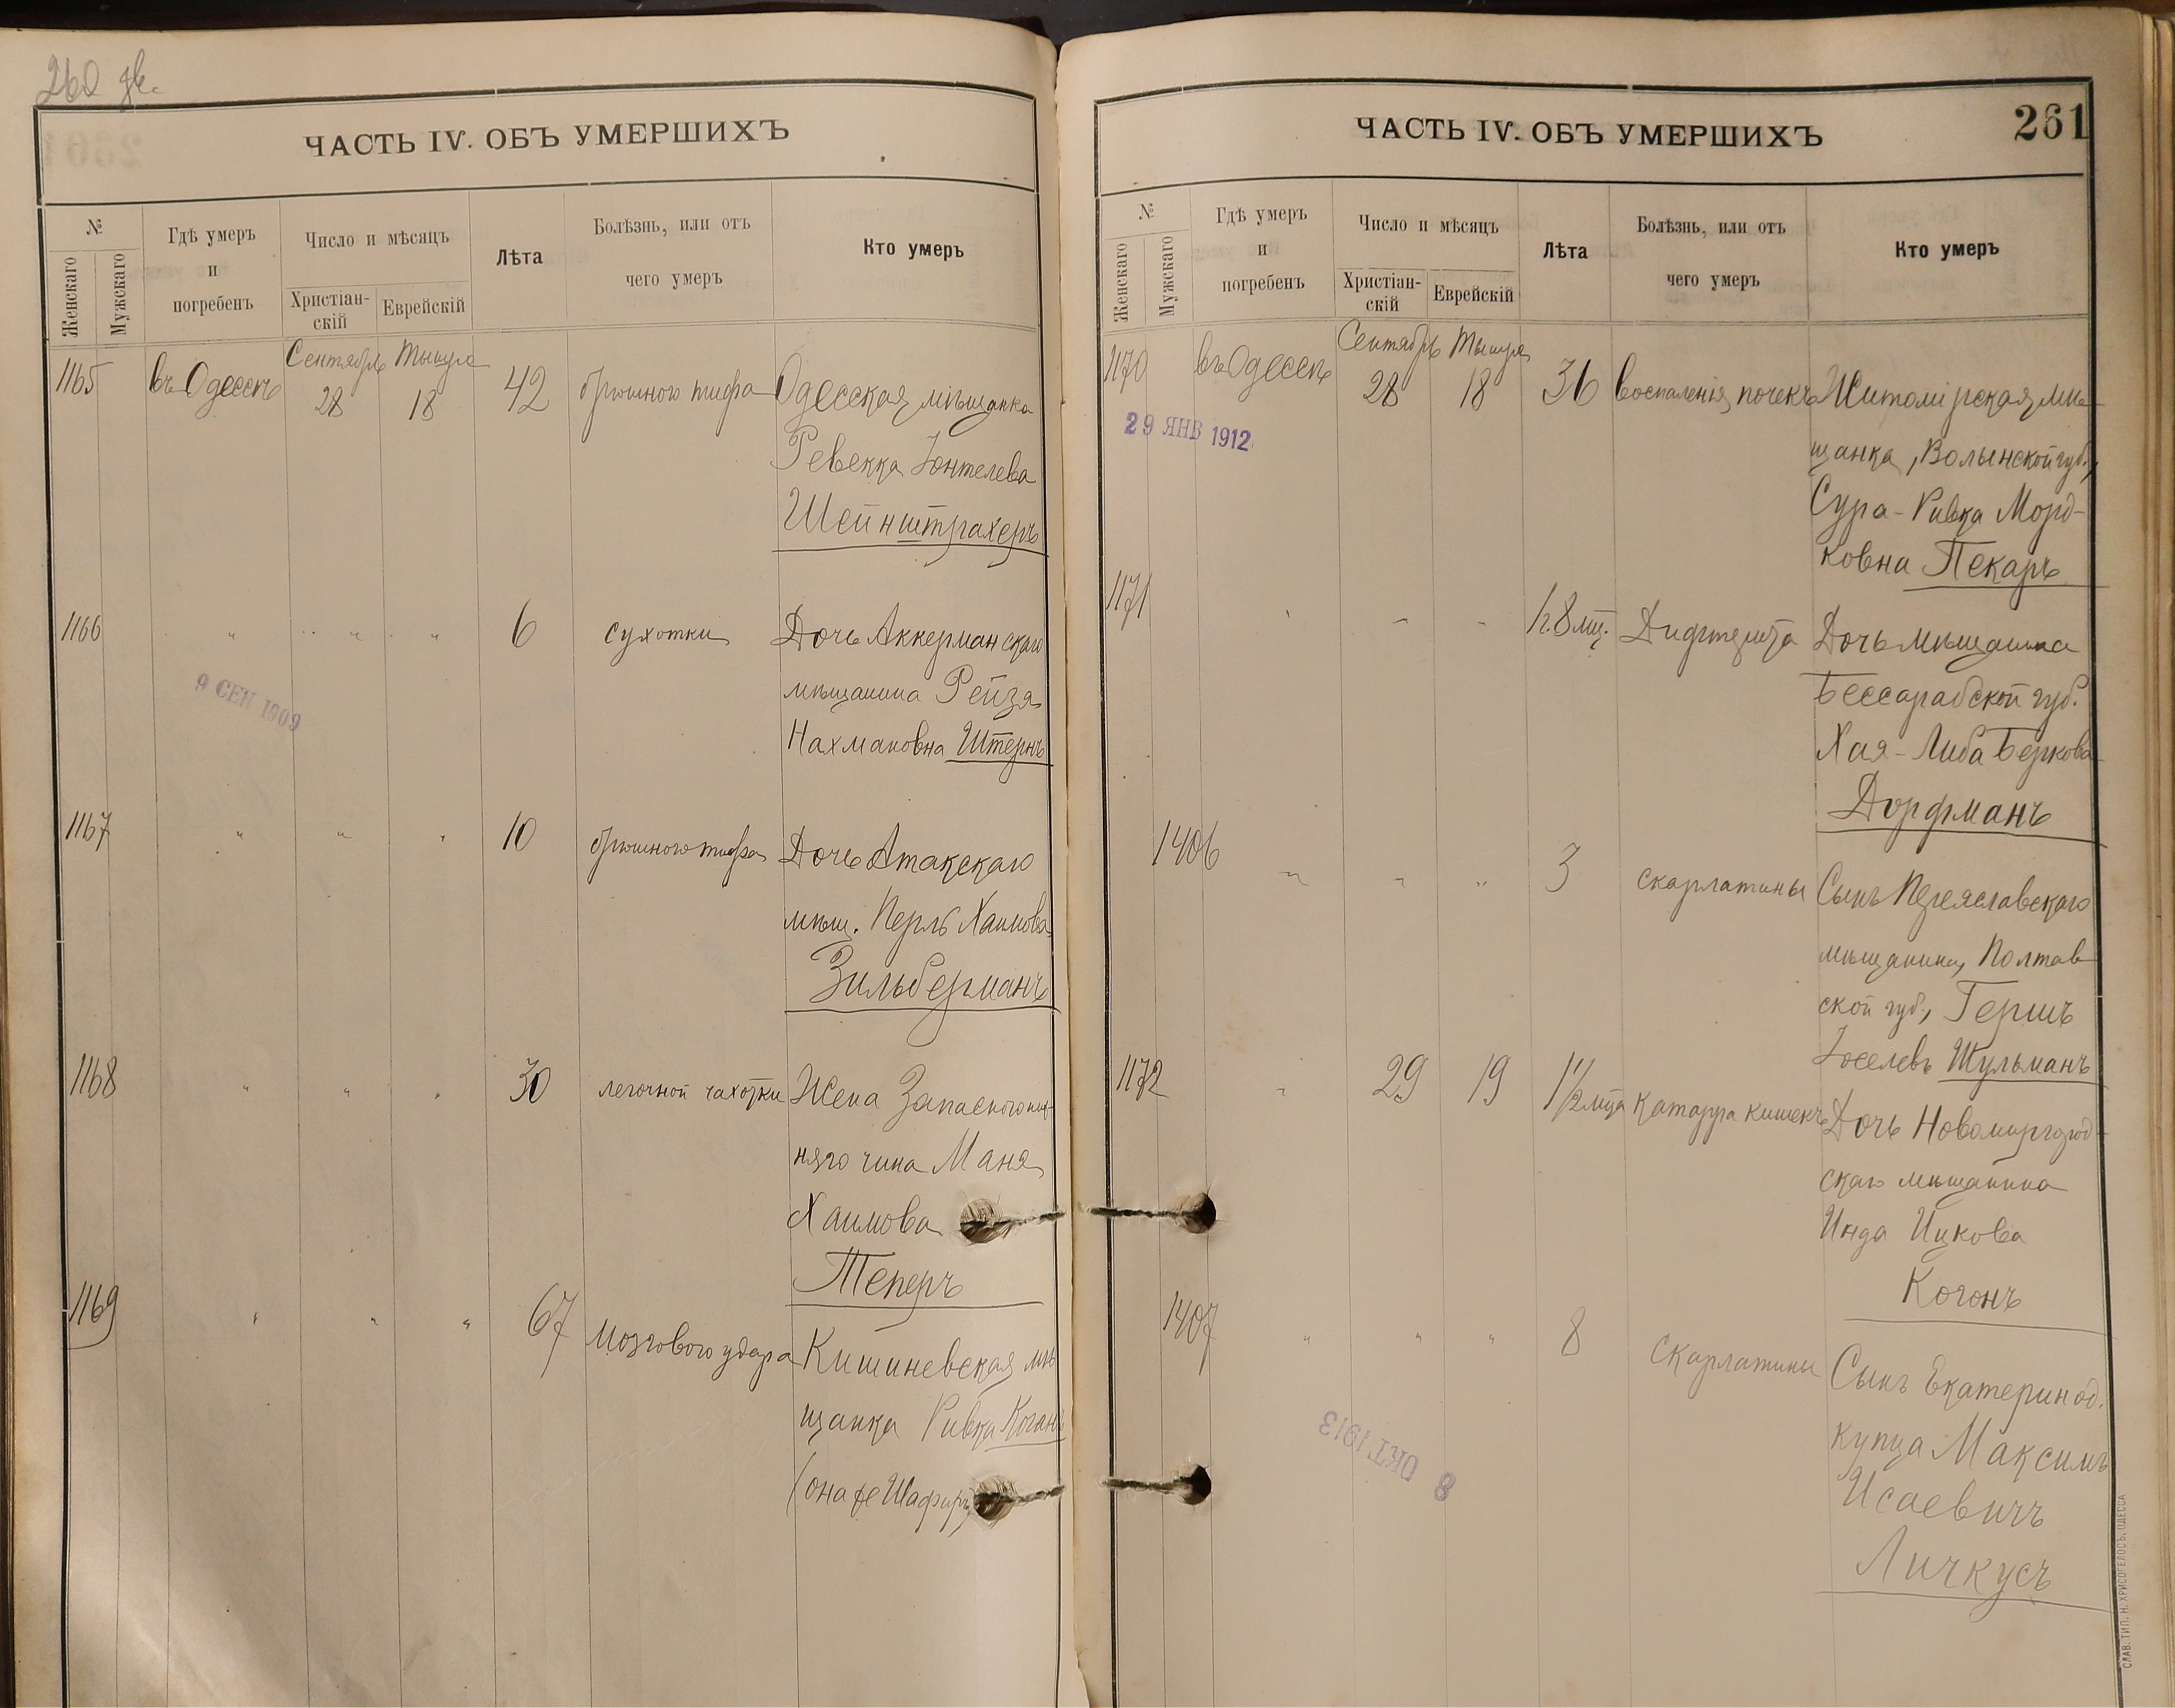 260 зв.
ЧАСТЬ IV. ОБЪ УМЕРШИХЪ
№
Женскаго
Мужскаго
Гдѣ умеръ
и
погребенъ
Число и мѣсяцъ
Христіан-
скій
Еврейскій
Лѣта
Болѣзнь, или отъ
чего умеръ
Кто умеръ
Сентябрь Тышря
1165 въ Одессѣ 28 18 42 брюшного тифа Одесская мѣщанка
Ревекка Іонтелева
Шейнштрахеръ
1166 " " " 6 сухотки Дочь Аккерманскаго
мѣщанина Рейзя
Нахмановна Штернъ
9 СЕН 1909
1167 " " " 10 брюшного тифа Дочь Атакскаго
мѣщ. Перль Хаимова
Зильберманъ
1168 " " " 30 легочной чахотки Жена Запасного ниж-
няго чина Маня
Хаимова
Теперъ
1169 " " " 67 мозгового удара Кишиневская мѣ
щанка Ривка Коганъ
(она же Шафиръ)
ЧАСТЬ IV. ОБЪ УМЕРШИХЪ
261
№
Женскаго
Мужскаго
Гдѣ умеръ
и
погребенъ
Число и мѣсяцъ
Христіан-
скій
Еврейскій
Лѣта
Болѣзнь, или отъ
чего умеръ
Кто умеръ
Сентябрь Тышря
1170 въ Одессѣ 28 18 36 воспаленія почекъ Житомірская мѣ-
щанка, Волынской губ.,
Сура-Ривка Морд-
ковна Пекаръ
29 ЯНВ 1912
1171 " " " 1г. 8 мц. Дифтерита Дочь мѣщанина
Бессарабской губ.
Хая-Либа Беркова
Дорфманъ
1406 " " " 3 скарлатины Сынъ Переяславскаго
мѣщанина, Полтав
ской губ., Гершъ
Іоселевъ Шульманъ
1172 " 29 19 1½ мца катарра кишекъ Дочь Новомиргород-
скаго мѣщанина
Инда Ицкова
Когонъ
1407 " " " 8 Скарлатины Сынъ Екатеринод.
купца Максимъ
Исаевичъ
Личкусъ
8 ОКТ 1913
СЛАВ. ТИП. Н. ХРИСОГЕЛОСЪ, ОДЕССА